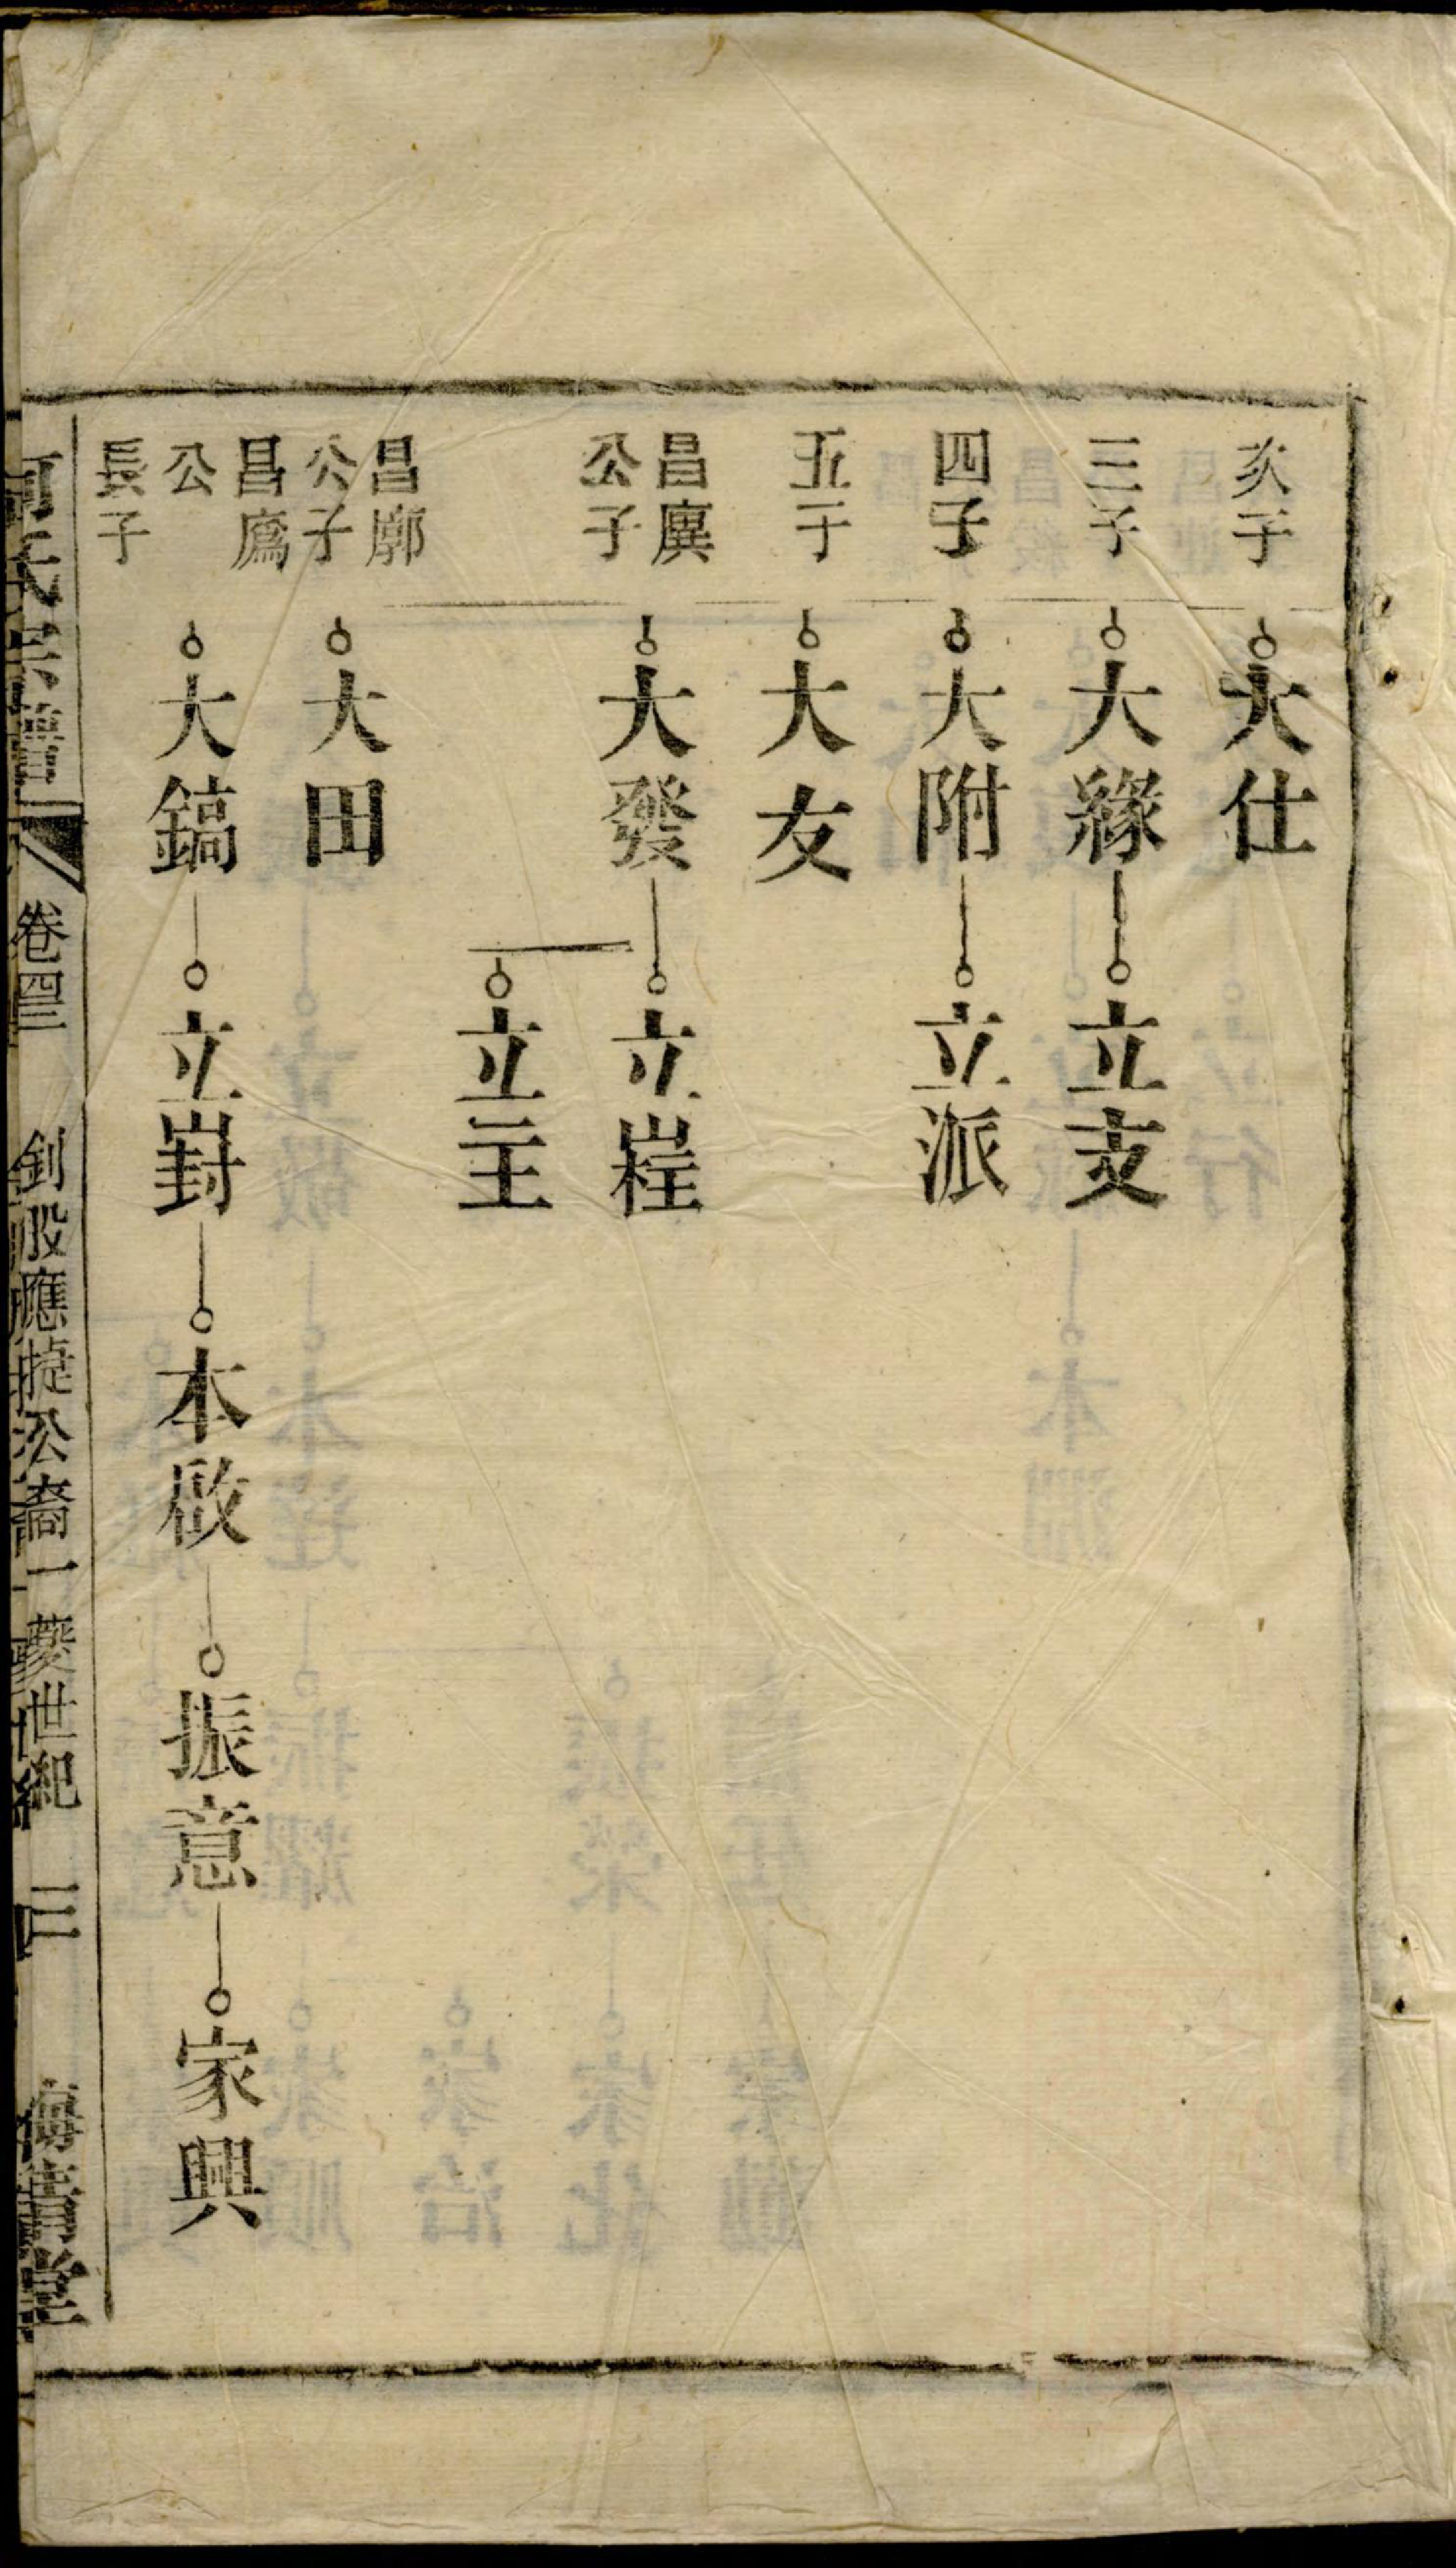 次子
大仕
三子
大緣 立支
四子
大附 立派
五子
大友
昌廙
公子
大發 立程
立主
昌廓
公子
大田
昌廌
公
長子
大鎬 立崶 本啟 振意 家興
卷四三 釗股應提公裔一夔世紀 三